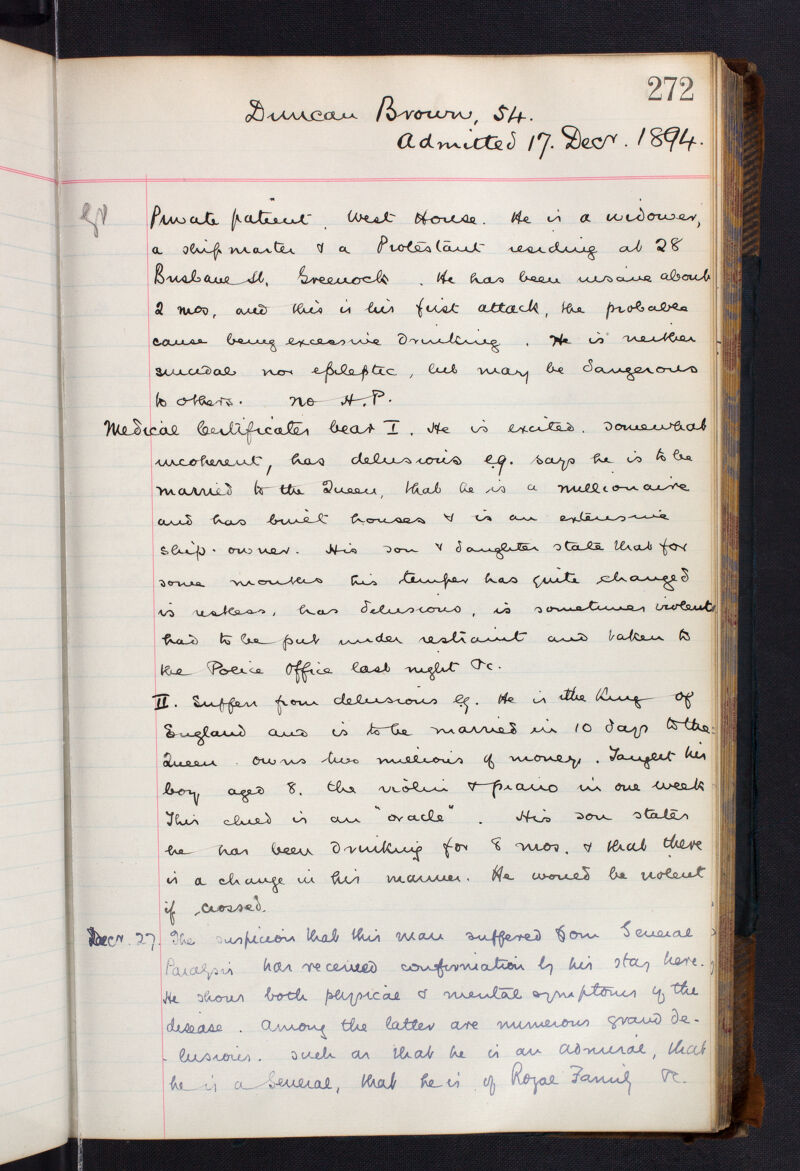 272
Duncan Brown, 54.
Admitted 17. Decr. 1894.
Private patient. West House. He is a widower,
a ship master & a Protestant residing at 28
Brisbane St, Greenock. He has been insane about
2 mos, and this is his first attack, the probable
cause being excessive drinking. He is neither
suicidal nor epileptic, but may be dangerous
to others. No H.P.
Medical Certificates bear I. He is excited. somewhat
incoherent, has delusions e.g. says he is to be
married to the Queen, that he is a millionaire
and has built houses & is an extensive
ship-owner. His son & daughter state that for
some months his temper has quite changed
is restless, has delusions, is sometimes violent
had to be put under restraint and taken to
the Police Office last night &c.
II. Suffers from delusions eg. He is the King of
England and is to be married in 10 days to the
Queen. owns two millions of money. Taught his
boy aged 8. the violin & piano in one week
This child is an "oracle". His son states
he has been drinking for 8 mos. & that there
is a change in his manner. He would be violent
if crossed.
Decr. 27. The suspicion that this man suffered from General
Paralysis has received confirmation by his stay here.
He shows both physical & mental symptoms of the
disease. Among the latter are numerous grand de-
-lusions. such as that he is an admiral, that
he is a General, that he is of Royal Family &c.